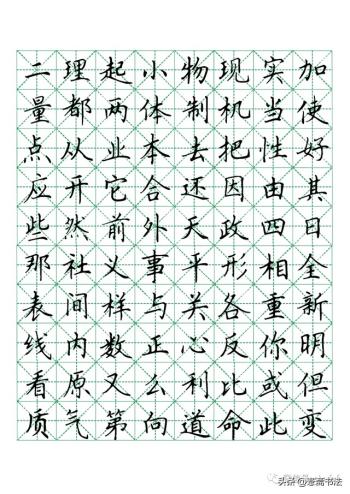 二理起小物现实加
量都两体制机当使
点从业本去把性好
应开它合还因由其
些然前外天政四日
那社义事平形相全
表间样与关各重新
线内数正心反你明
看原又么利比或但
质气第向道命此变
头条@意高书法